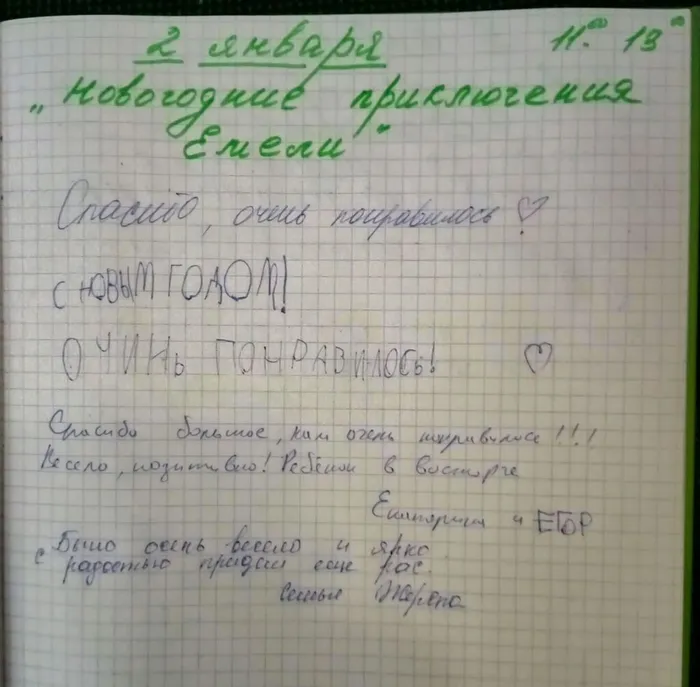 2 января 11⁰⁰ 13⁰⁰
„Новогодние приключения
Емели"
Спасибо, очень понравилось ♡
С НОВЫМ ГОДОМ!
ОЧИНЬ ПОНРАВИЛОСЬ! ♡
Спасибо большое, нам очень понравилось!!!
Весело, позитивно! Ребёнок в восторге
Екатерина и ЕГОР
Было очень весело и ярко
с радостью придём еще рас.
Семья